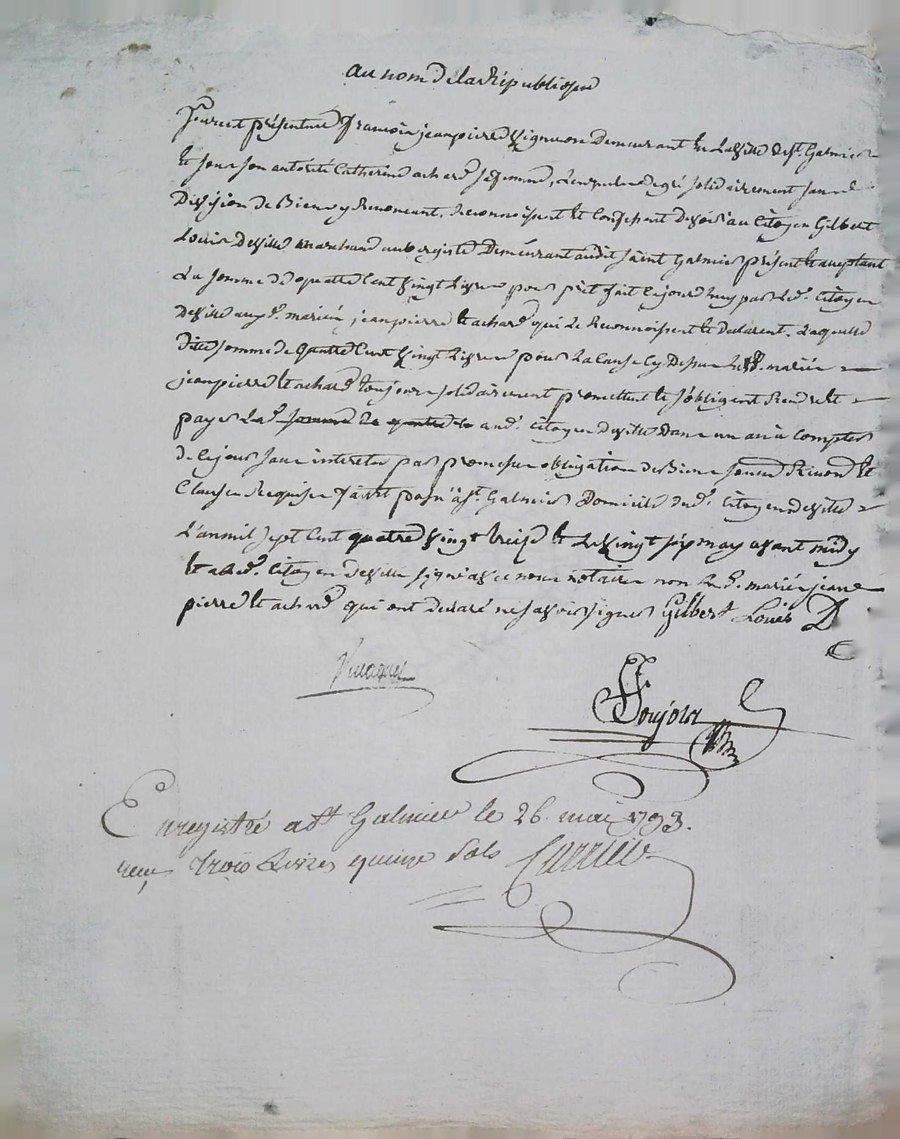 au nom de la République
furent présents françois jeanpierre vigneron Demeurant en la ville de st. Galmier
et sous son autorité Catherine achard sa femme, Lesquels de gré solidairement sans
Division de Biens y Renonçant, Reconnoissent et Confessent Devoir au Citoyen Gilbert
Louis Deville marchand aubergiste Demeurant audit Saint Galmier présent et acceptant
La somme de quatre Cent vingt Livres pour prêt fait cejourdhuy par led. Citoyen
Deville auxd. mariés jeanpierre et achard qui Le Reconnoissent et Declarent. Laquelle
dite somme de quatre Cent vingt Livres pour La Cause Cy Dessus Lesd. mariés
jeanpierre et achard toujours solidairement promettent et s'obligent Rendre et
payer aud. Citoyen Deville Dans un an à Compter
de Cejour sans interets par promesse obligation de Biens soumis Renon et
Clauses Requises fait et passé à st. Galmier Domicile dud. Citoyen deville
L'an mil sept Cent quatre vingt treize et Le vingt six may avant midy
et a led. Citoyen deville signé avec nous notaire non lesd. mariés jean
pierre et achard qui ont declaré ne savoir signer Gilbert Louis D
Enregistré a st Galmier le 26. mai 1793.
reçu trois Livres quinze sols Carrier